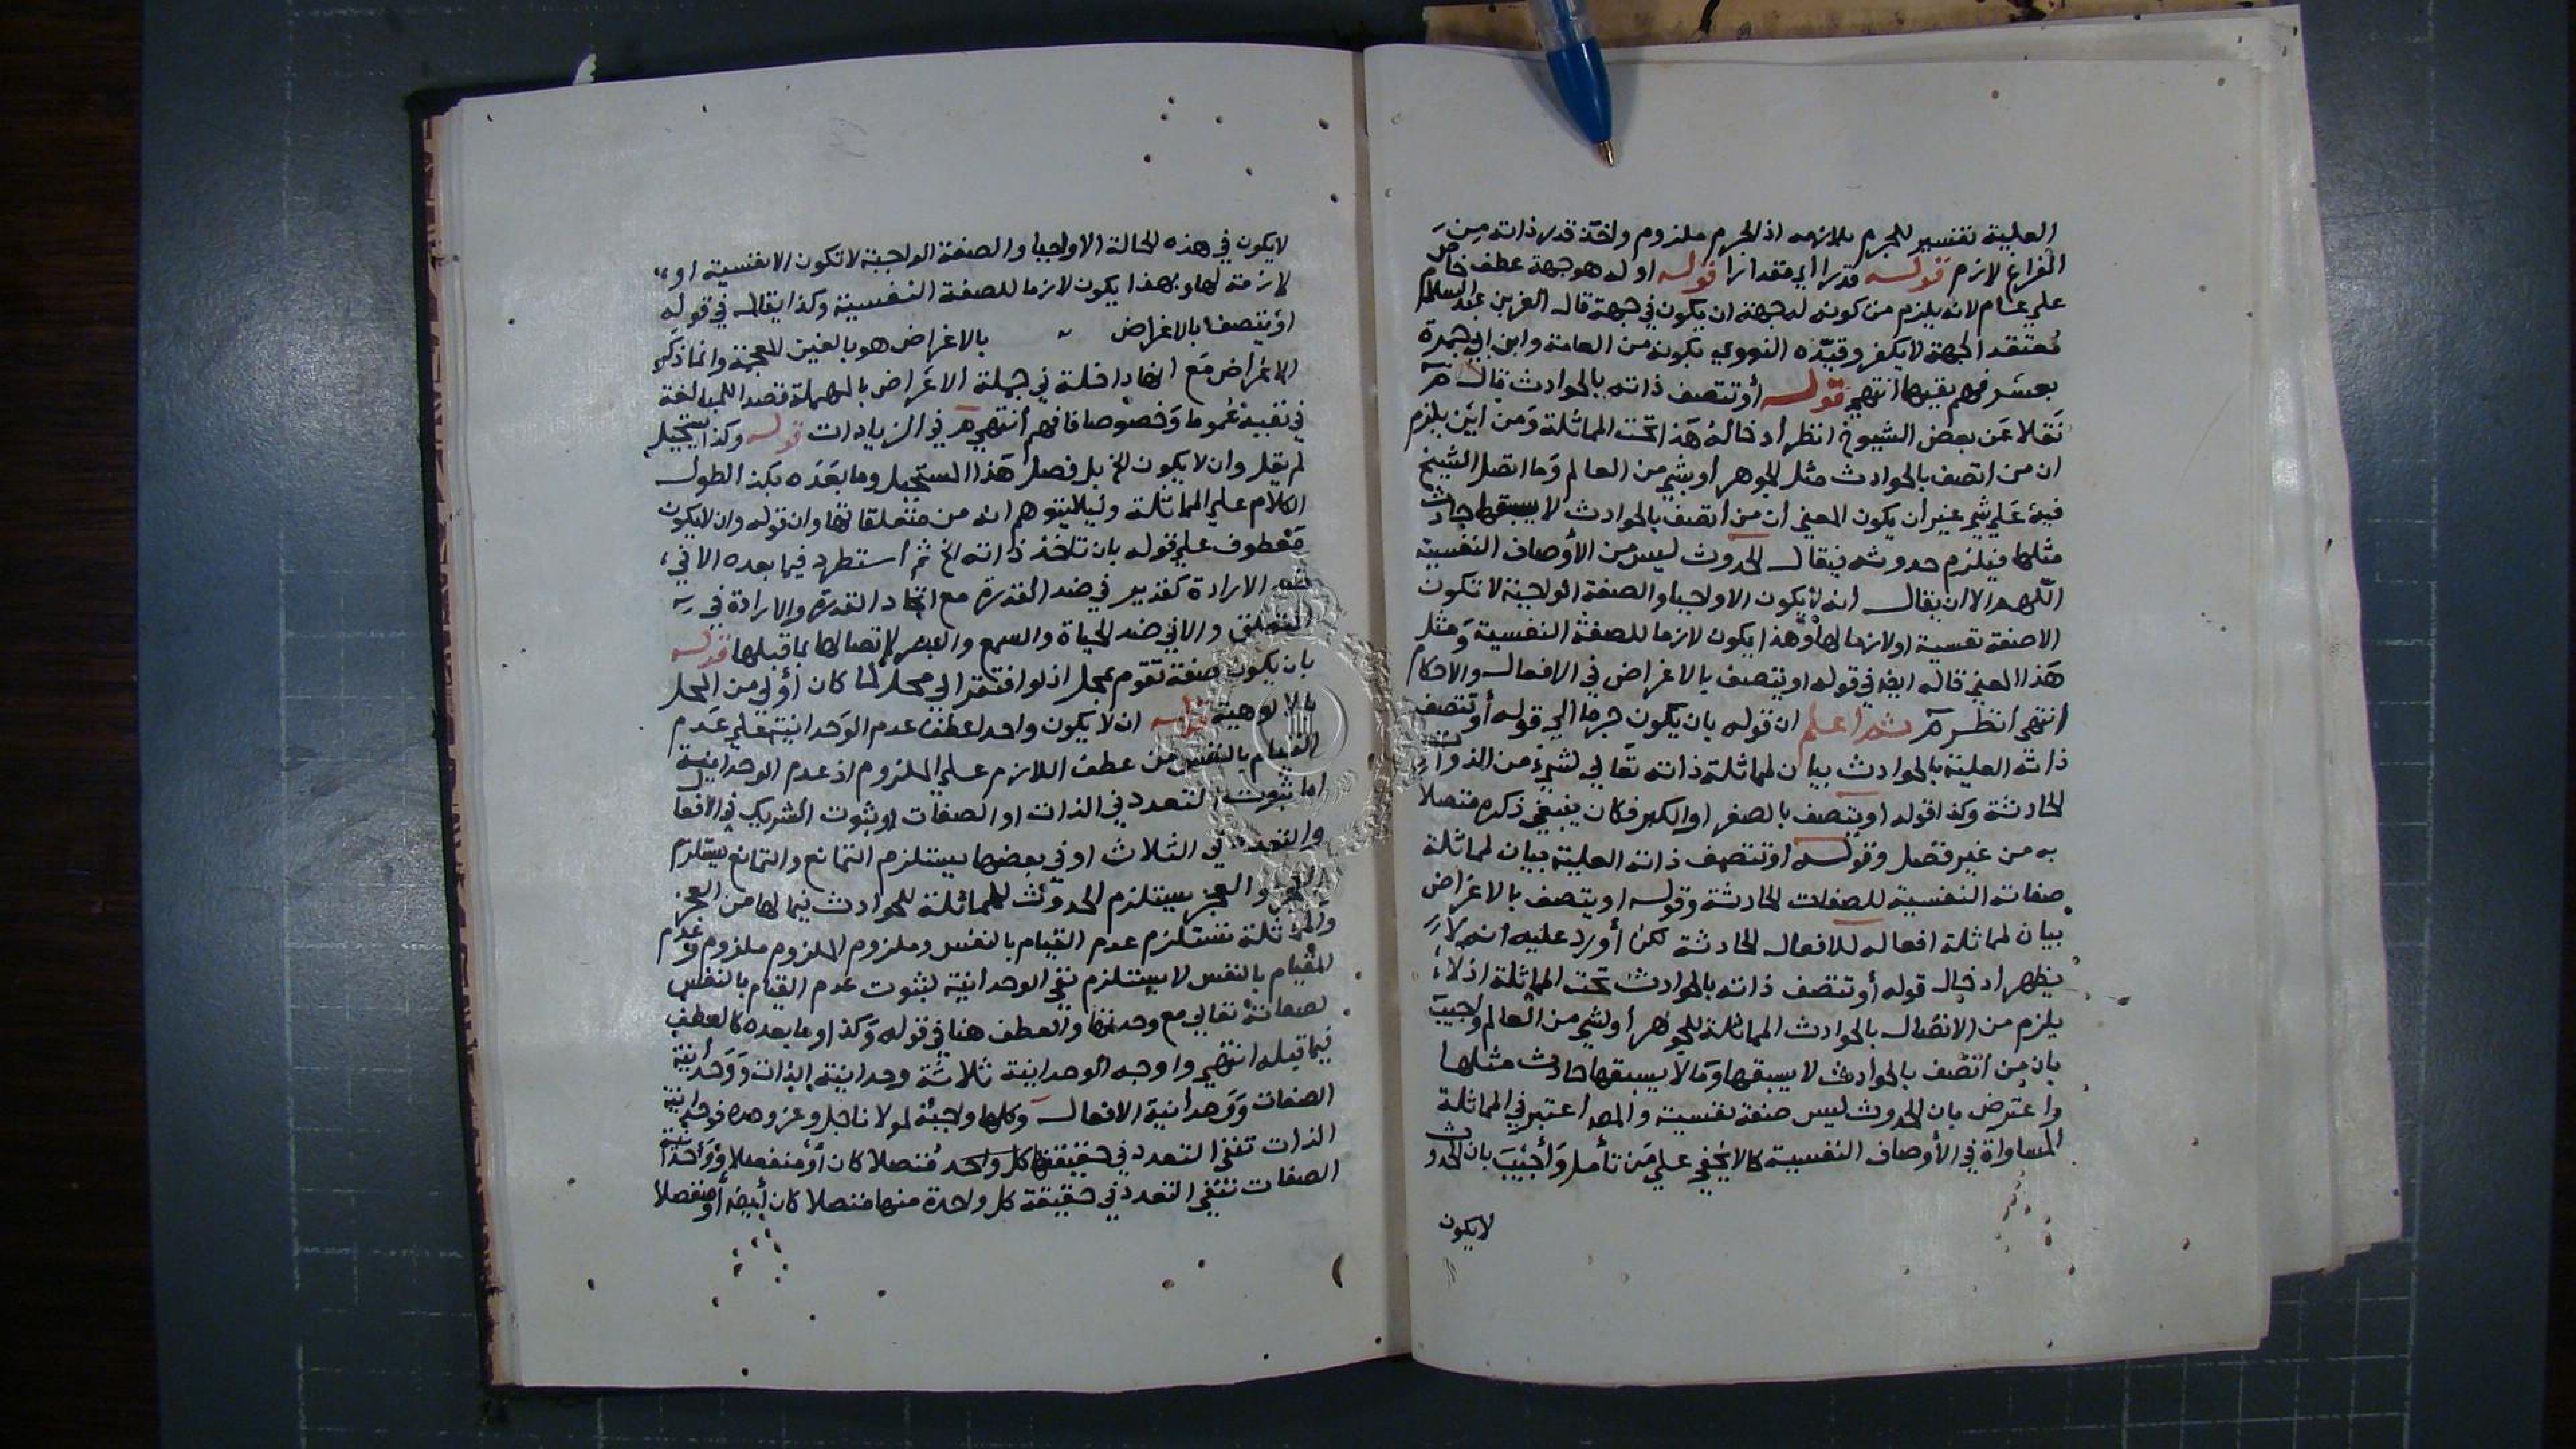 العلية تفسير للجرم بلازمه اذ الجرم ملزوم واخذ قدر ذاته من
الفراغ لازم قوله قدرا اي مقدارا قوله او له هو جهة عطف خاص
علي عام لانه يلزم من كونه له جهة ان يكون في جهة قال العز بن عبد السلام
معتقد الجهة لا يكفر وقيده النووي بكونه من العامة وابن ابي جمرة
بعسر فهم نفيها انتهي قوله أو تتصف ذاته بالحوادث قال
نقلا عن بعض الشيوخ انظر أدخاله هذا تحت المماثلة ومن أين يلزم
ان من اتصف بالحوادث مثل الجوهر أو شي من العالم وما اتصل الشيخ
فيه علي شي غير أن يكون المعني أن من أتصف بالحوادث لا يسبقها حادث
مثلها فيلزم حدوثه فيقال الحدوث ليس من الأوصاف النفسية
اللهم الا ان يقال انه لا يكون الا واجبا والصفة الواجبة لا تكون
الا صفة نفسية او لازما لها وهذا يكون لازما للصفة النفسية ومثل
هذا المعني قاله ايضا في قوله او يتصف بالاغراض في الافعال والاحكام
انتهي أنظر ثم اعلم ان قوله بان يكون جرما الي قوله أو تتصف
ذاته العلية بالحوادث بيان لمماثلة ذاته تعالي لشيء من الذوات
الحادثة وكذا قوله او يتصف بالصغر او الكبر فكان ينبغي ذكره متصلا
به من غير فصل وقوله او تتصف ذاته العلية بيان لمماثلة
صفاته النفسية للصفات الحادثة وقوله او يتصف بالاغراض
بيان لمماثلة افعاله للافعال الحادثة لكن أورد عليه انه لا
يظهر ادخال قوله أو تتصف ذاته بالحوادث تحت المماثلة اذ لا
يلزم من الاتصال بالحوادث المماثلة للجوهر أو لشي من العالم واجيب
بان من اتصف بالحوادث لا يسبقها وما لا يسبقها حادث مثلها
واعترض بان الحدوث ليس صفة نفسية والمصـ اعتبر في المماثلة
المساواة في الأوصاف النفسية كما لا يخفي علي من تأمل وأجيب بان الحدوث
لا يكون
لا يكون في هذه الحالة الا واجبا والصفة الواجبة لا تكون الا نفسية او
لازمة لها وبهذا يكون لازما للصفة النفسية وكذا يقال في قوله
او يتصف بالاغراض بالاغراض هو بالغين المعجمة وانما ذكر
الاغراض مع انها داخلة في جملة الاعراض بالمهملة قصدا للمبالغة
في نفيه عموما وخصوصا فافهم أنتهي في الزيادات قوله وكذا يستحيل
لم يقل وان لا يكون الخ بل فصل هذا المستحيل وما بعده بكذا لطول
الكلام علي المماثلة وليلا يتوهم انه من متعلقاتها وان قوله وان لا يكون
معطوف علي قوله بان تاخذ ذاته الخ ثم أستطرد فيما بعده الا في
ضد الارادة كغدير في ضد القدرة مع اتحاد القدرة والارادة في
التعلق والا في ضد الحياة والسمع والبصر لاتصالها بما قبلها قوله
بان يكون صفة تقوم بمحل اذ لو افتقر الي محل لما كان أولي من المحل
بالالوهية قوله ان لا يكون واحدا عطف عدم الوحدانية علي عدم
القيام بالنفس من عطف اللازم علي الملزوم اذ عدم الوحدانية
اما ثبوت التعدد في الذات او الصفات او ثبوت الشريك في الافعال
والتعدد في الثلاث او في بعضها يستلزم التمانع والتمانع يستلزم
العجز والعجز يستلزم الحدوث للمماثلة للحوادث فيما لها من العجز
والمماثلة تستلزم عدم القيام بالنفس وملزوم الملزوم ملزوم وعدم
القيام بالنفس لا يستلزم نفي الوحدانية لثبوت عدم القيام بالنفس
لصفاته تعالي مع وحدتها والعطف هنا في قوله وكذا وما بعده كالعطف
فيما قبله انتهي واوجه الوحدانية ثلاثة وحدانية الذات ووحدانية
الصفات ووحدانية الافعال وكلها واجبة لمولانا جل وعز وحده فوحدانية
الذات تنفي التعدد في حقيقتها كل واحد متصلا كان أو منفصلا ووحدانية
الصفات تنفي التعدد في حقيقة كل واحدة منها متصلا كان أيضا أو منفصلا